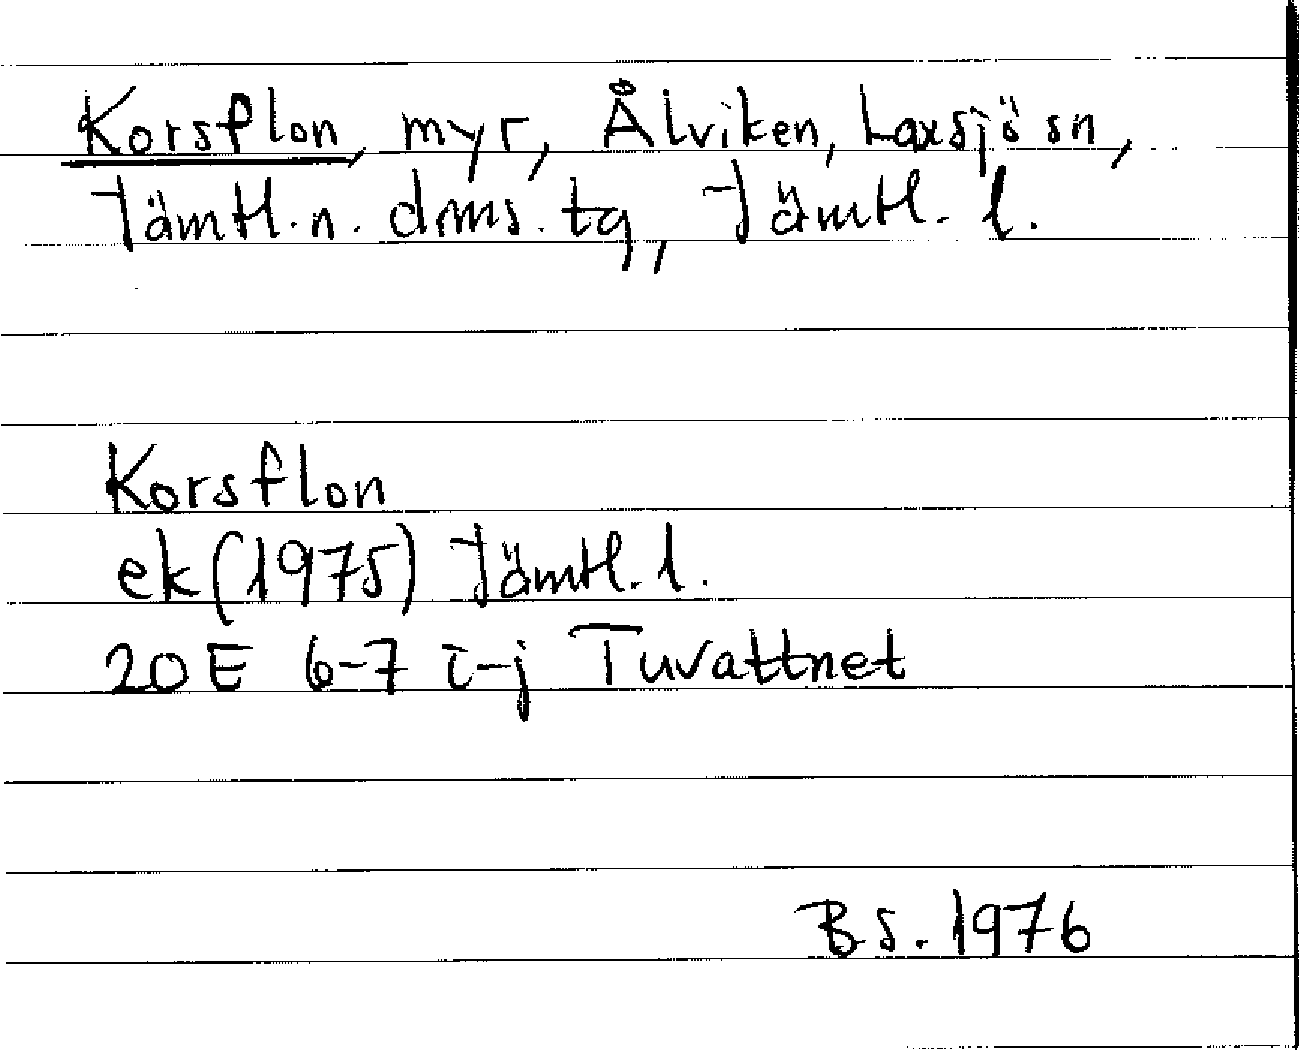 Korsflon, myr, Ålviken, Laxsjö sn,
Jämtl. n. dms. tg, Jämtl. l.
Korsflon
ek (1975) Jämtl. l.
20 E 6-7 i-j Tuvattnet
B S. 1976